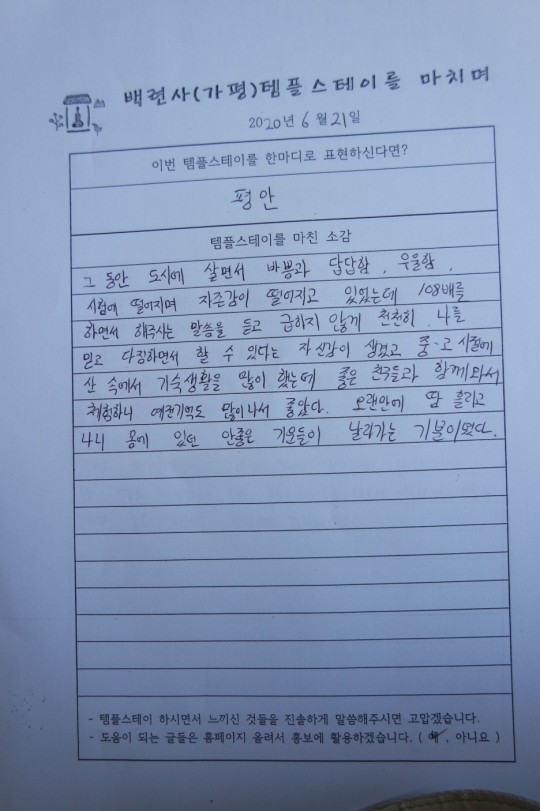 백련사(가평)템플스테이를 마치며
2020년 6월 21일
이번 템플스테이를 한마디로 표현하신다면?
평안
템플스테이를 마친 소감
그 동안 도시에 살면서 바쁨과 답답함, 우울함,
시험에 떨어지며 자존감이 떨어지고 있었는데 108배를
하면서 해주시는 말씀을 듣고 급하지 않게 천천히 나를
믿고 다짐하면서 할 수 있다는 자신감이 생겼고 중·고 시절에
산 속에서 기숙생활을 많이 했는데 좋은 친구들과 함께와서
체험하니 예전기억도 많이나서 좋았다. 오랜만에 땀 흘리고
나니 몸에 있던 안좋은 기운들이 날라가는 기분이었다.
- 템플스테이 하시면서 느끼신 것들을 진솔하게 말씀해주시면 고맙겠습니다.
- 도움이 되는 글들은 홈페이지 올려서 홍보에 활용하겠습니다. ( 예 , 아니요 )